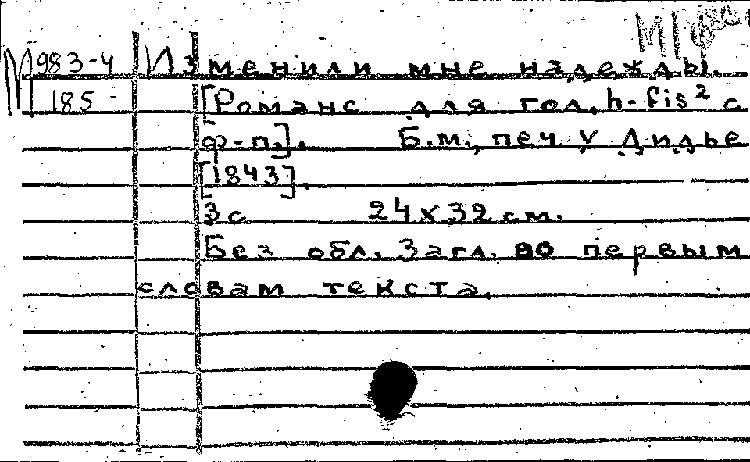 М 983-4 Изменили мне надежды.
185- [Романс для гол. h-fis² с
ф-п.]. Б.м., печ. у Дидье
[1843].
3с 24x32 см.
Без обл. Загл. во первым
словам текста.